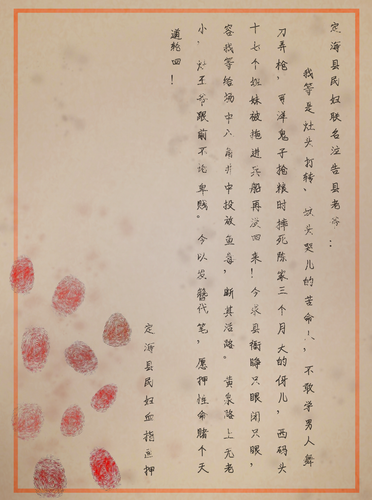 定海县民妇联名泣告县老爷：
我等是灶头打转、坟头哭儿的苦命人，不敢学男人舞
刀弄枪，可洋鬼子抢粮时摔死陈家三个月大的伢儿，西码头
十七个姐妹被拖进兵船再没回来！今求县衙睁只眼闭只眼，
容我等给汤中八角井中投放鱼毒，断其活路。黄泉路上无老
小，灶王爷跟前不论卑贱。今以发簪代笔，愿押性命赌个天
道轮回！
定海县民妇血指画押